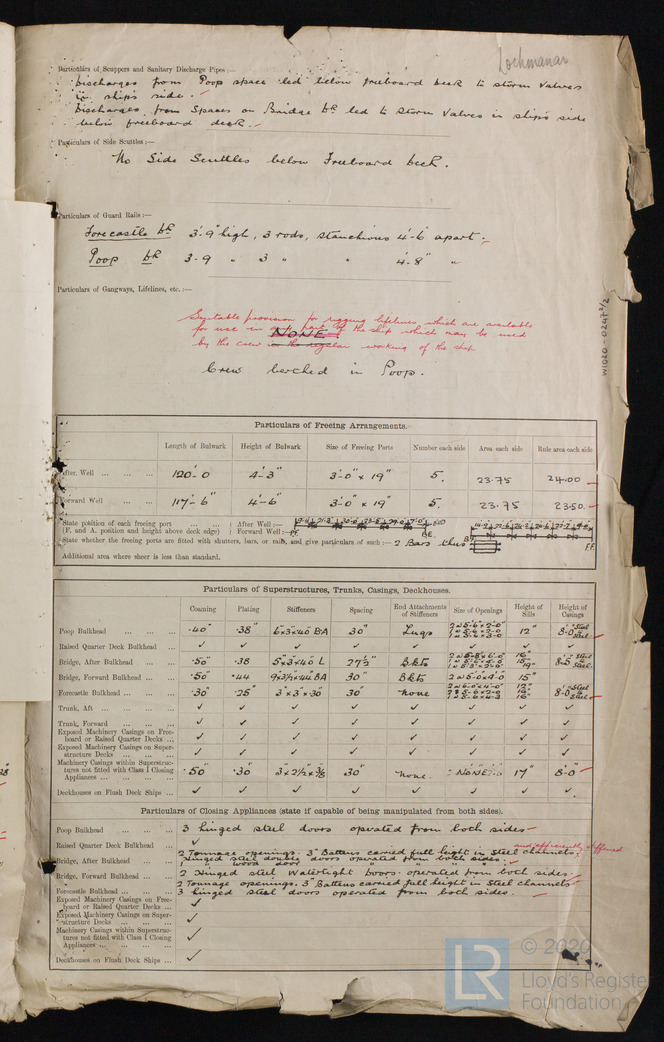 Lochmanar
Particulars of Scuppers and Sanitary Discharge Pipes :—
Discharges from Poop space led below freeboard deck to storm valves
in ship's side.
Discharges from Spaces on Bridge Dk led to Storm Valves in ships side
below freeboard deck.
Particulars of Side Scuttles :—
No Side Scuttles below Freeboard Deck.
Particulars of Guard Rails :—
Forecastle Dk 3'-9" high, 3 rods, stanchions 4'-6" apart.
Poop Dk 3-9 " 3 " " 4'-8" "
Particulars of Gangways, Lifelines, etc. :—
Suitable provision for rigging lifelines which are available
for use in any part of the ship which may be used
NONE
by the crew in the regular working of the ship
Crew berthed in Poop.
W1020-0247 2/2
Particulars of Freeing Arrangements.
Length of Bulwark Height of Bulwark Size of Freeing Ports Number each side Area each side Rule area each side
After Well ... ... ... 120'-0 4'-3" 3'-0" x 19" 5. 23.75 24.00
Forward Well ... ... 117'-6" 4'-6" 3'-0" x 19" 5. 23.75 23.50
State position of each freeing port ... ... ... After Well :—
(F. and A. position and height above deck edge) Forward Well :—
State whether the freeing ports are fitted with shutters, bars, or rails, and give particulars of such :— 2 Bars thus
Additional area where sheer is less than standard.
Particulars of Superstructures, Trunks, Casings, Deckhouses.
Coaming Plating Stiffeners Spacing End Attachments of Stiffeners Size of Openings Height of Sills Height of Casings
Poop Bulkhead ... ... ... .40" .38" 6"x3"x.40 BA 30" Lugs 12" 8-0
Raised Quarter Deck Bulkhead ... ✓ ✓ ✓ ✓ ✓ ✓ ✓ ✓
Bridge, After Bulkhead ... ... .50" .38 5"x3"x.40 L 27½" Bkts
Bridge, Forward Bulkhead ... .50" .44 9x3½x.44 BA 30" Bkts 2 @ 5-0x4-0 15"
Forecastle Bulkhead ... ... ... .30" .25" 3"x3"x.30" 30" none 8-0
Trunk, Aft ... ... ... ✓ ✓ ✓ ✓ ✓ ✓ ✓ ✓
Trunk, Forward ... ... ... ✓ ✓ ✓ ✓ ✓ ✓ ✓ ✓
Exposed Machinery Casings on Freeboard or Raised Quarter Decks ... ✓ ✓ ✓ ✓ ✓ ✓ ✓ ✓
Exposed Machinery Casings on Superstructure Decks ... ✓ ✓ ✓ ✓ ✓ ✓ ✓ ✓
Machinery Casings within Superstructures not fitted with Class I Closing Appliances ... .50" .30" 3"x2½"x⅜ 30" none. NONE 17" 8'-0"
Deckhouses on Flush Deck Ships ... ✓ ✓ ✓ ✓ ✓ ✓ ✓ ✓
Particulars of Closing Appliances (state if capable of being manipulated from both sides).
Poop Bulkhead ... ... ... 3 hinged steel doors operated from both sides
Raised Quarter Deck Bulkhead ... ✓
and efficiently stiffened
2 Tonnage openings. 3" Battens carried full hight in Steel channels.
Bridge, After Bulkhead ... ... Hinged steel double doors operated from both sides.
1 " wood door " " " "
Bridge, Forward Bulkhead ... ... 2 Hinged steel Watertight Doors operated from both sides.
2 Tonnage openings. 3" Battens carried full height in Steel channels
Forecastle Bulkhead ... ... ... 3 hinged steel doors operated from both sides.
Exposed Machinery Casings on Freeboard or Raised Quarter Decks ... ✓
Exposed Machinery Casings on Superstructure Decks ... ✓
Machinery Casings within Superstructures not fitted with Class I Closing Appliances ... ✓
Deckhouses on Flush Deck Ships ... ✓
LR
© 2020
Lloyd's Register
Foundation